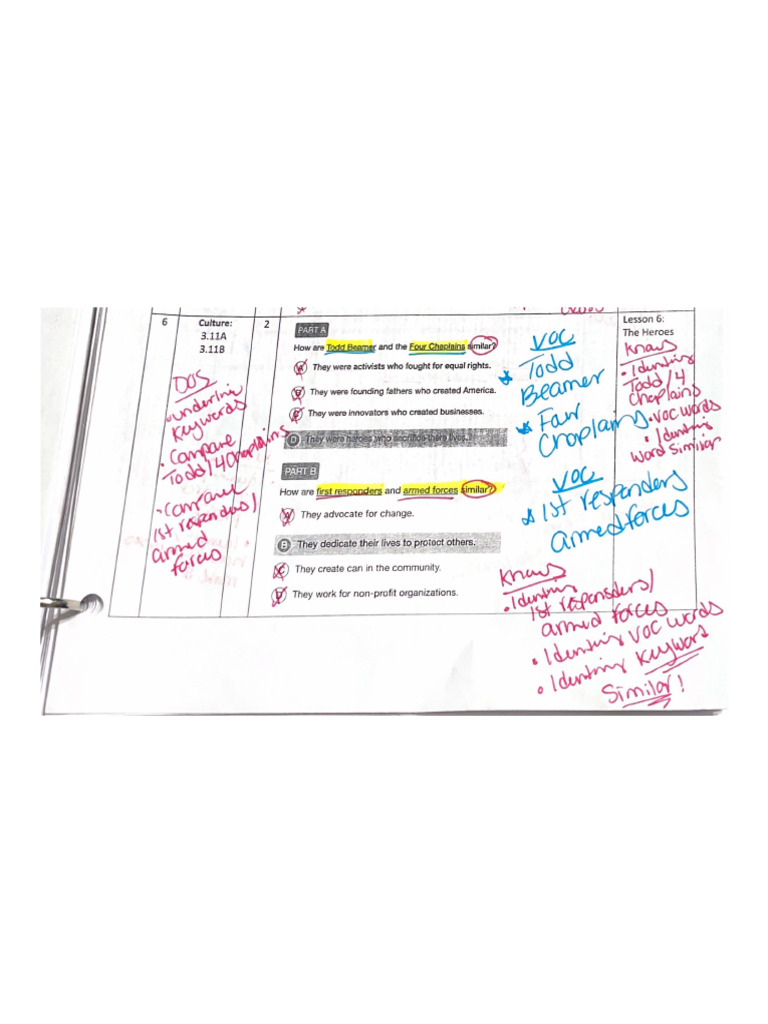 6
Culture:
3.11A
3.11B
2
PART A
How are Todd Beamer and the Four Chaplains similar?
A They were activists who fought for equal rights.
B They were founding fathers who created America.
C They were innovators who created businesses.
D They were heroes who sacrifice there lives.
PART B
How are first responders and armed forces similar?
A They advocate for change.
B They dedicate their lives to protect others.
C They create can in the community.
D They work for non-profit organizations.
Lesson 6:
The Heroes
DOS
• underline
Keywords
• Compare
Todd/4 Chaplains
• Compare
1st responders/
armed
forces
VOC
Todd
Beamer
Chaplains
VOC
1st responders
armed forces
Knows
Todd/4
Chaplains
• VOC words
word Similar
Knows
armed forces
VOC words
Keyword
Similar!